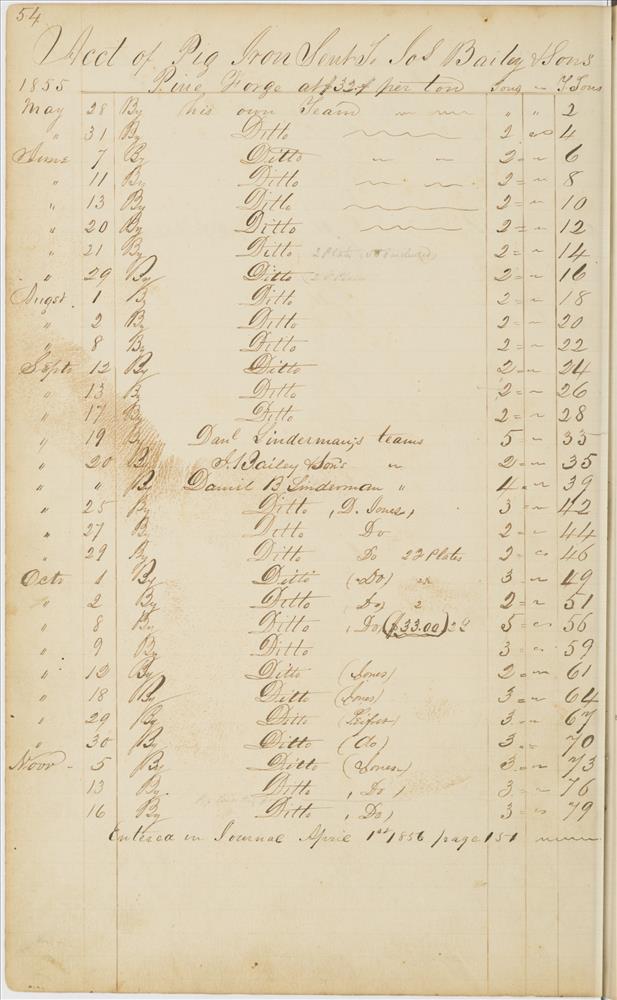 54
Acct of Pig Iron Sent To Jos Bailey & Sons
1855 Pine Forge at $32 per ton Tons " T Tons
May 28 By his own Team " " 2
" 31 By Ditto 2 " 4
June 7 By Ditto " " 2 = " 6
" 11 By Ditto 2 = " 8
" 13 By Ditto 2 = " 10
" 20 By Ditto 2 = " 12
" 21 By Ditto 2 Plats 2 = " 14
" 29 By Ditto 2 = " 16
Augst 1 By Ditto 2 = " 18
" 2 By Ditto 2 = " 20
" 8 By Ditto 2 = " 22
Septr 12 By Ditto 2 = " 24
" 13 By Ditto 2 = " 26
" 17 By Ditto 2 = " 28
" 19 By Danl Linderman,s teams 5 " 33
" 20 By J. Bailey & Sons " 2 = " 35
" " By Daniel B Linderman " 4 = " 39
" 25 By Ditto , D. Jones, 3 = " 42
" 27 By Ditto Do 2 = " 44
" 29 By Ditto Do 22 Plates 2 = " 46
Octo 1 By Ditto (Do) 3 = " 49
" 2 By Ditto , Do) 2 2 = " 51
" 8 By Ditto , Do, ($33.00) 5 = " 56
" 9 By Ditto 3 = " 59
" 12 By Ditto (Jones) 2 = " 61
" 18 By Ditto (Jones) 3 = " 64
" 29 By Ditto 3 = " 67
" 30 By Ditto (do) 3 = " 70
Novr - 5 By Ditto (Jones) 3 = " 73
13 By Ditto , Do , 3 = " 76
16 By Ditto , Do) 3 = " 79
Entered in Journal April 1st 1856 page 151